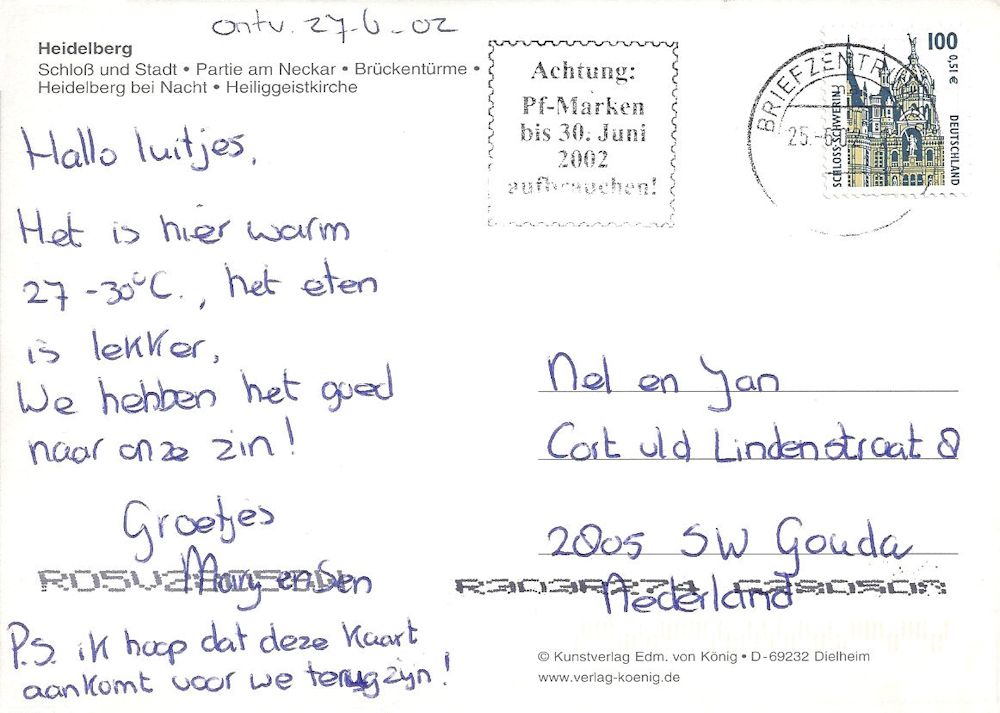 ontv. 27-6-02
Heidelberg
Schloß und Stadt • Partie am Neckar • Brückentürme •
Heidelberg bei Nacht • Heiliggeistkirche
Achtung:
Pf-Marken
bis 30. Juni
2002
aufbrauchen!
BRIEFZENTRUM
25.-6.0
100
0,51 €
DEUTSCHLAND
SCHLOSS SCHWERIN
Hallo luitjes,
Het is hier warm
27-30°C., het eten
is lekker,
We hebben het goed
naar onze zin!
Groetjes
Mary en Sen
P.S. ik hoop dat deze kaart
aankomt voor we terug zijn!
Nel en Jan
Cort vld Lindenstraat 8
2805 SW Gouda
Nederland
© Kunstverlag Edm. von König • D-69232 Dielheim
www.verlag-koenig.de